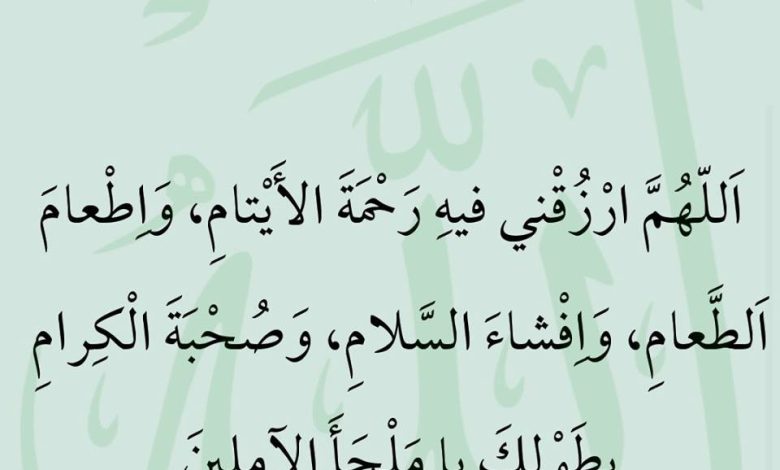 اَللّهُمَّ ارْزُقْني فيهِ رَحْمَةَ الأَيْتامِ، وَاِطْعامَ
اَلطَّعامِ، وَاِفْشاءَ السَّلامِ، وَصُحْبَةَ الْكِرامِ
بِطَوْلِكَ يا مَلْجَأَ الآمِلينَ